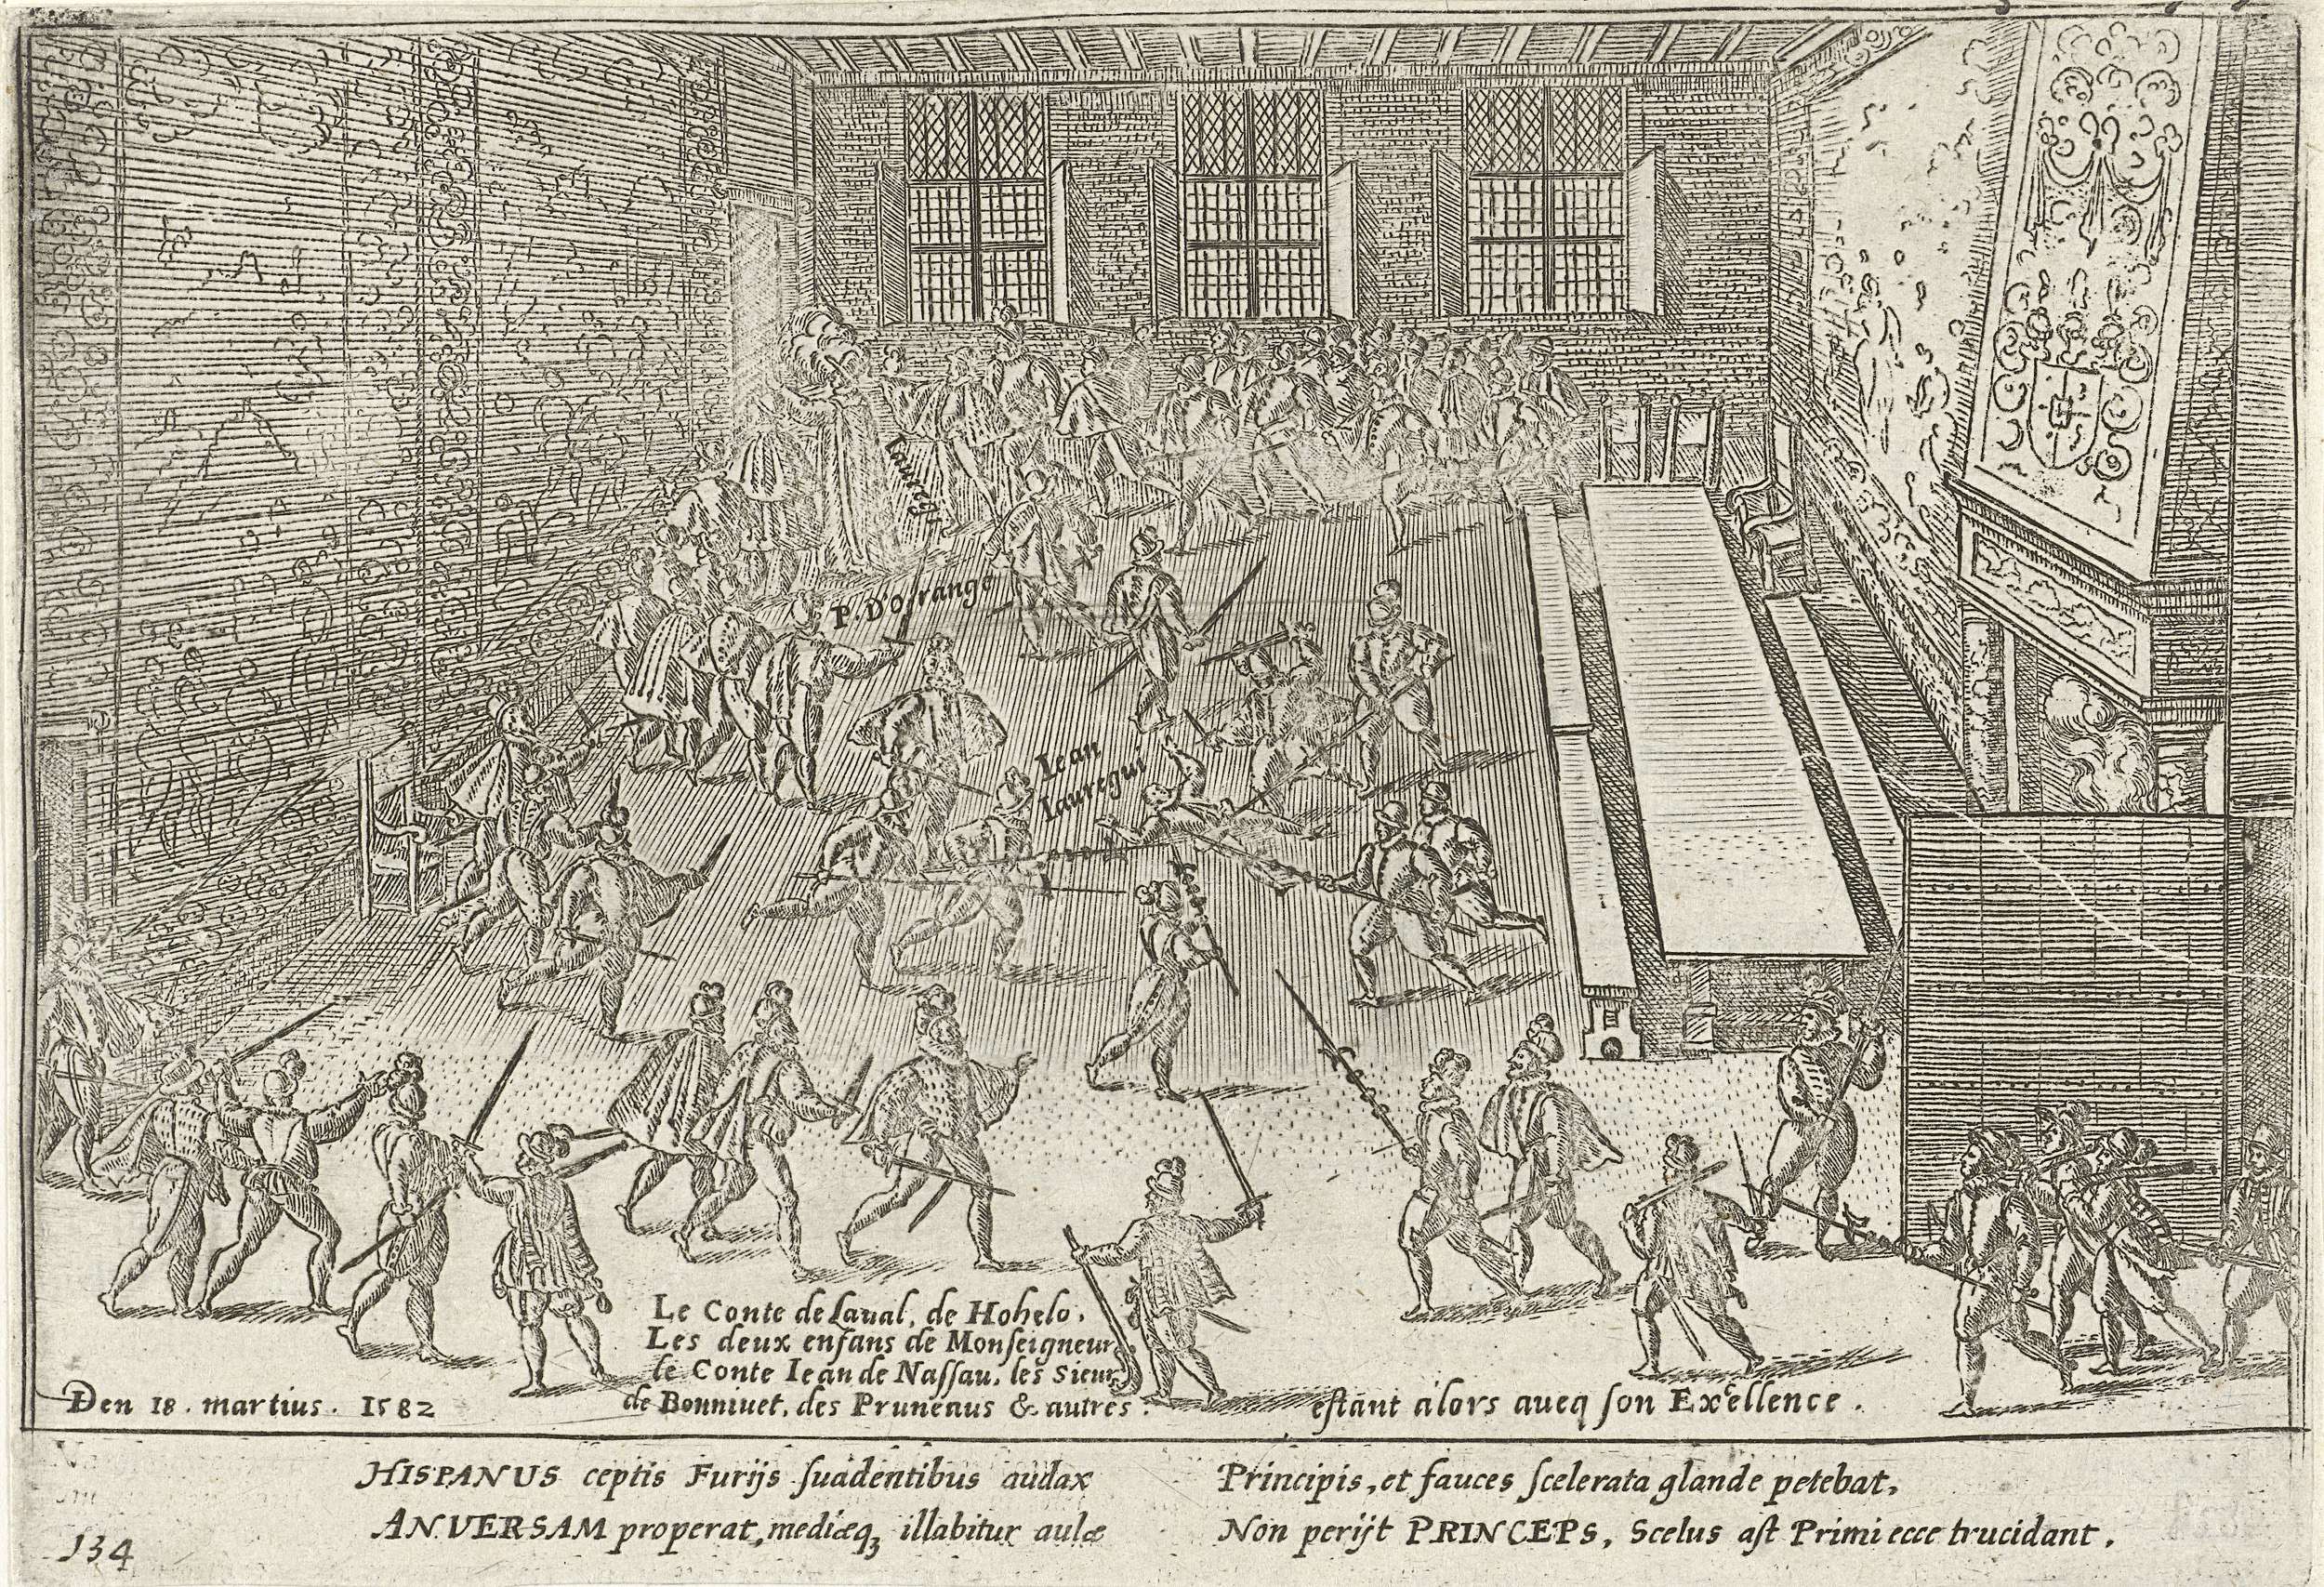 Lauregi
P. D'Orange
Iean
Iauregui
Le Conte de Laual, de Hohelo,
Les deux enfans de Monſeigneur
le Conte Iean de Naſſau, les Sieurs
de Bonniuet, des Pruneaus & autres.
eſtant alors aueq ſon Excellence.
Den 18. martius. 1582
HISPANUS ceptis Furijs ſuadentibus audax
ANVERSAM properat, mediæqꝫ illabitur aulæ
Principis, et fauces ſcelerata glande petebat,
Non perijt PRINCEPS, Scelus aſt Primi ecce trucidant.
134